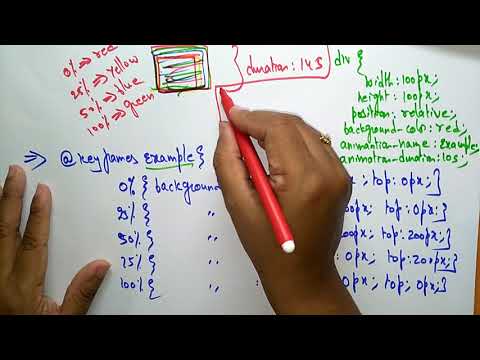 0% => red
25% => yellow
50% => blue
100% => green
} duration: 14s }
div {
width: 100px;
height: 100px;
position: relative;
background-color: red;
animation-name: example;
animation-duration: 10s;
=> @keyframes example {
0% { background ; top: 0px; }
25% { " 00px; top: 0px; }
50% { " 00px; top: 200px; }
75% { " : 0px; top: 200px; }
100% { " : 0px; top: 0px; }